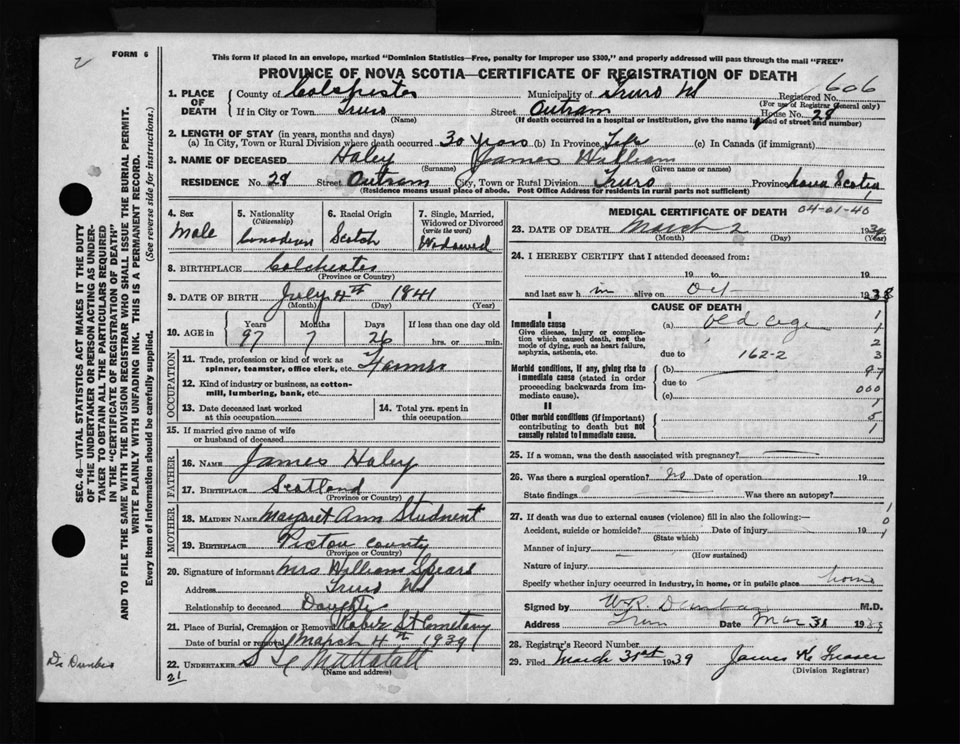 2
FORM 6
This form if placed in an envelope, marked "Dominion Statistics—Free, penalty for improper use $300," and properly addressed will pass through the mail "FREE"
PROVINCE OF NOVA SCOTIA—CERTIFICATE OF REGISTRATION OF DEATH
606
1. PLACE OF DEATH
County of Colchester Municipality of Truro NS Registered No.
(For use of Registrar General only)
If in City or Town Truro Street Outram House No. 28
(Name) (If death occurred in a hospital or institution, give the name instead of street and number)
2. LENGTH OF STAY (in years, months and days)
(a) In City, Town or Rural Division where death occurred 30 Years (b) In Province Life (c) In Canada (if immigrant)
3. NAME OF DECEASED Haley James William
(Surname) (Given name or names)
RESIDENCE No. 28 Street Outram City, Town or Rural Division Truro Province Nova Scotia
(Residence means usual place of abode. Post Office Address for residents in rural parts not sufficient)
1
4. Sex
Male
5. Nationality
(Citizenship)
Canadian
6. Racial Origin
Scotch
7. Single, Married, Widowed or Divorced
(write the word)
Widowed
8. BIRTHPLACE Colchester
(Province or Country)
9. DATE OF BIRTH July 4th 1841
(Month) (Day) (Year)
10. AGE in
Years Months Days If less than one day old
97 7 26 hrs. or min.
OCCUPATION
11. Trade, profession or kind of work as
spinner, teamster, office clerk, etc. Farmer
12. Kind of industry or business, as cotton-
mill, lumbering, bank, etc.
13. Date deceased last worked
at this occupation
14. Total yrs. spent in
this occupation
15. If married give name of wife
or husband of deceased
FATHER
16. NAME James Haley
17. BIRTHPLACE Scotland
(Province or Country)
MOTHER
18. MAIDEN NAME Margaret Ann
19. BIRTHPLACE Pictou County
(Province or Country)
20. Signature of informant Mrs William Spears
Address Truro NS
Relationship to deceased Daughter
21. Place of Burial, Cremation or Removal Robie St Cemetary
Date of burial or removal March 4th 1939
22. UNDERTAKER
(Name and address)
21
MEDICAL CERTIFICATE OF DEATH 04-01-40
23. DATE OF DEATH March 2 1939
(Month) (Day) (Year)
24. I HEREBY CERTIFY that I attended deceased from:
19 to 19
and last saw h im alive on Oct 1938
CAUSE OF DEATH
I
Immediate cause
Give disease, injury or complica-
tion which caused death, not the
mode of dying, such as heart failure,
asphyxia, asthenia, etc.
(a) Old Age
due to 162-2
Morbid conditions, if any, giving rise to
immediate cause (stated in order
proceeding backwards from im-
mediate cause).
(b)
due to
(c)
II
Other morbid conditions (if important)
contributing to death but not
causally related to immediate cause.
1
1
2
3
97
000
1
5
1
25. If a woman, was the death associated with pregnancy?
26. Was there a surgical operation? No Date of operation 19
State findings Was there an autopsy?
27. If death was due to external causes (violence) fill in also the following:—
Accident, suicide or homicide? Date of injury 19
(State which)
Manner of injury
(How sustained)
Nature of injury
Specify whether injury occurred in industry, in home, or in public place home
1
0
1
Signed by W.R. Dunbar M.D.
Address Truro Date Mar 31 1939
28. Registrar's Record Number
29. Filed March 31st 1939 James K Fraser
(Division Registrar)
SEC. 46—VITAL STATISTICS ACT MAKES IT THE DUTY
OF THE UNDERTAKER OR PERSON ACTING AS UNDER-
TAKER TO OBTAIN ALL THE PARTICULARS REQUIRED
IN THE "CERTIFICATE OF REGISTRATION OF DEATH"
AND TO FILE THE SAME WITH THE DIVISION REGISTRAR WHO SHALL ISSUE THE BURIAL PERMIT.
WRITE PLAINLY WITH UNFADING INK. THIS IS A PERMANENT RECORD.
Every item of information should be carefully supplied. (See reverse side for instructions.)
Dr Dunbar